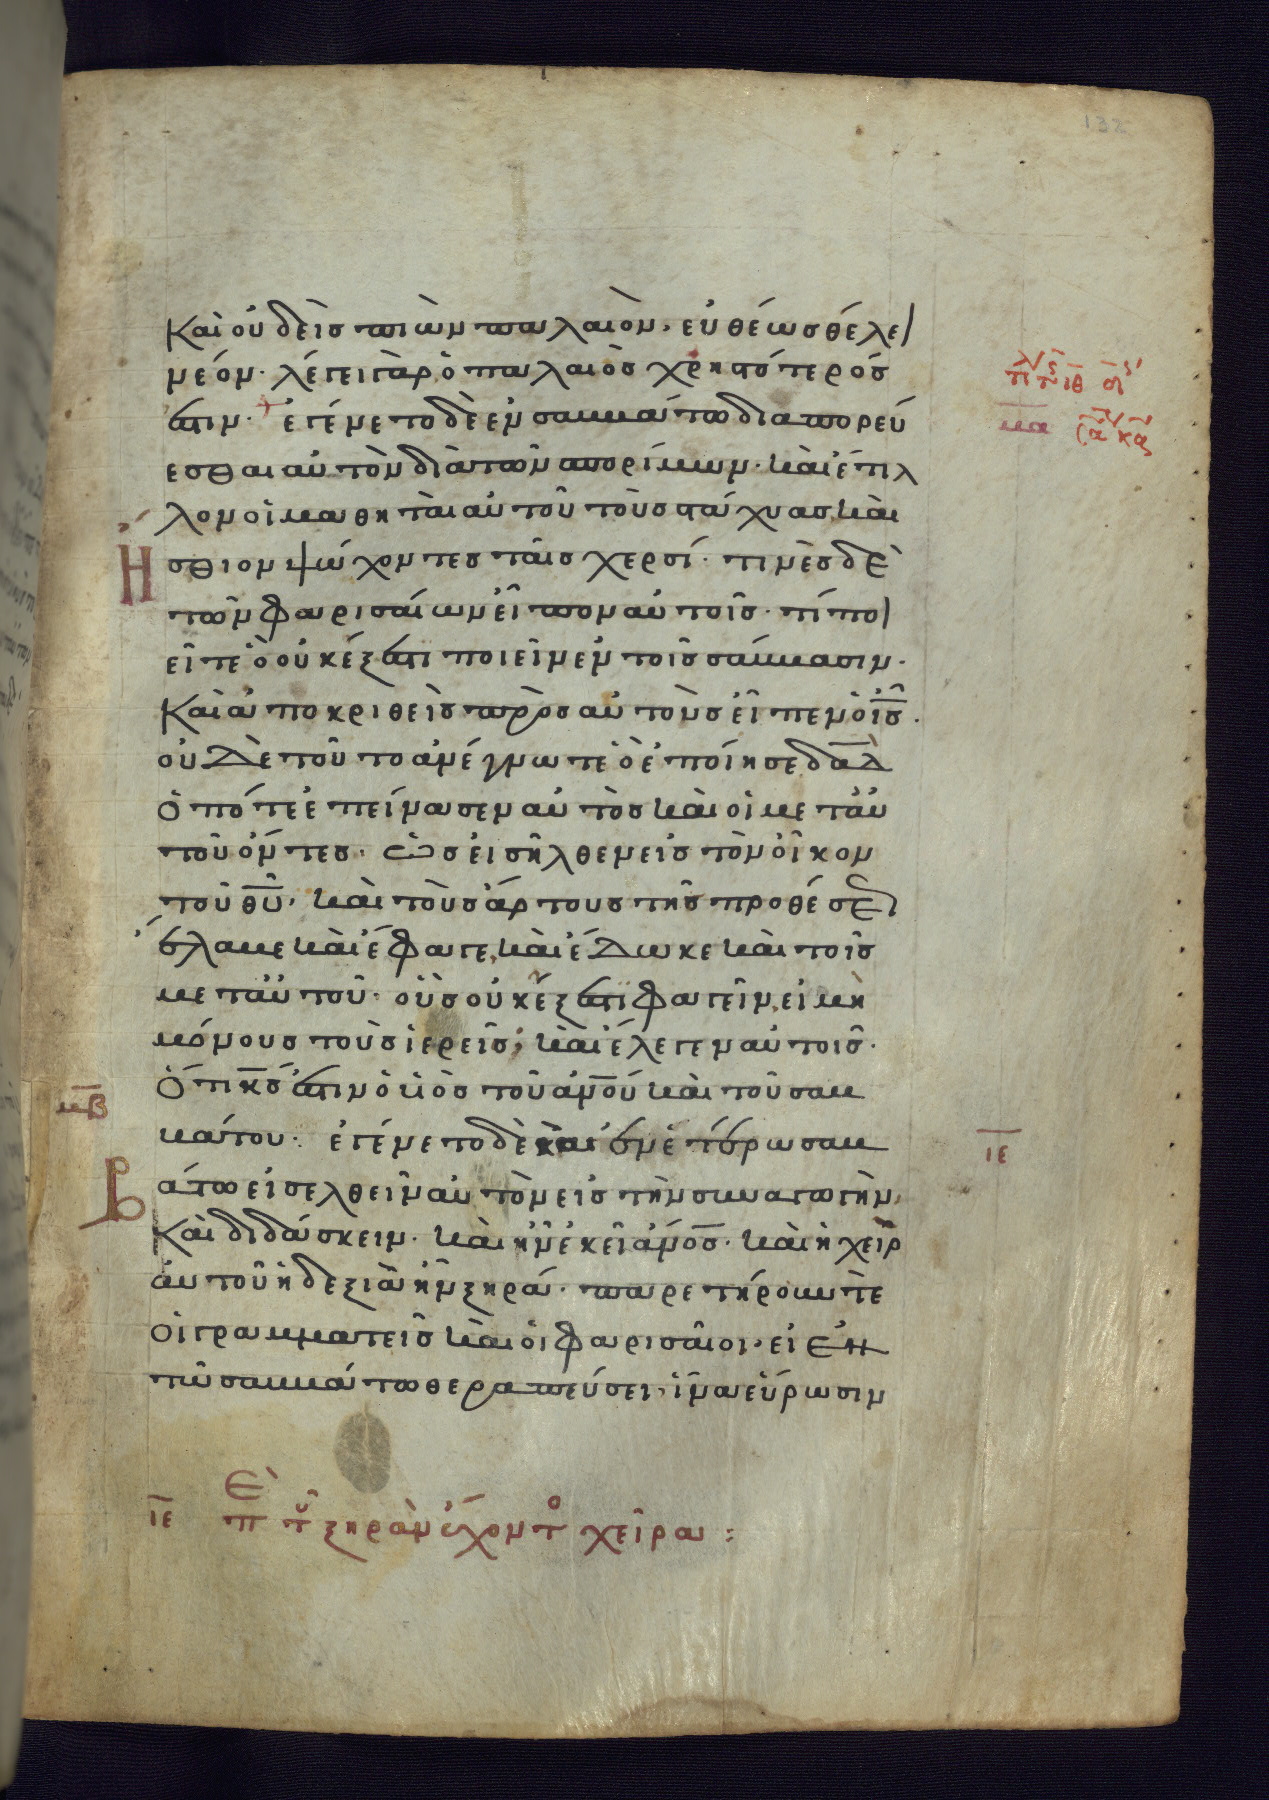 132
Καὶ οὐδεὶς πιὼν παλαιὸν, εὐθέως θέλει
νέον· λέγει γὰρ ὁ παλαιὸς χρηστότερός
ἐστιν· ἐγένετο δὲ ἐν σαββάτω διαπορεύ
εσθαι αὐτὸν διὰ τῶν σπορίμων· καὶ ἔτιλ
λον οἱ μαθηταὶ αὐτοῦ τοὺς στάχυας καὶ
Ἤσθιον ψώχοντες ταῖς χερσί· τινὲς δὲ
τῶν φαρισαίων εἶπον αὐτοῖς· τί ποι
εῖτε ὃ οὐκ ἔξεστι ποιεῖν ἐν τοῖς σάββασιν·
Καὶ ἀποκριθεὶς πρὸς αὐτοὺς εἶπεν ὁ ις̅·
οὐδὲ τοῦτο ἀνέγνωτε ὃ ἐποίησε δαδ̅
Ὁπότε ἐπείνασεν αὐτὸς καὶ οἱ μετ' αὐ
τοῦ ὄντες· ὡς εἰσῆλθεν εἰς τὸν οἶκον
τοῦ θυ̅, καὶ τοὺς ἄρτους τῆς προθέσεως
ἔλαβε καὶ ἔφαγε, καὶ ἔδωκε καὶ τοῖς
μετ' αὐτοῦ· οὓς οὐκ ἔξεστι φαγεῖν, εἰ μὴ
μόνους τοὺς ἱερεῖς; καὶ ἔλεγεν αὐτοῖς·
Ὅτι κς̅ ἐστιν ὁ υἱὸς τοῦ ανου̅ καὶ τοῦ σαβ
μβ̅
βάτου· ἐγένετο δὲ καὶ ἐν ἑτέρω σαβ
ιε̅
βάτω εἰσελθεῖν αὐτὸν εἰς τὴν συναγωγὴν,
Καὶ διδάσκειν· καὶ ἦν ἐκεῖ ανος̅· καὶ ἡ χεὶρ
αὐτοῦ ἡ δεξιὰ ἦν ξηρά· παρετήρουν τε
οἱ γραμματεῖς καὶ οἱ φαρισαῖοι· εἰ ἐν
τῶ σαββάτω θεραπεύσει, ἵνα εὕρωσιν
ιε̅ Περὶ τοῦ ξηρὰν ἔχοντος χεῖρα: